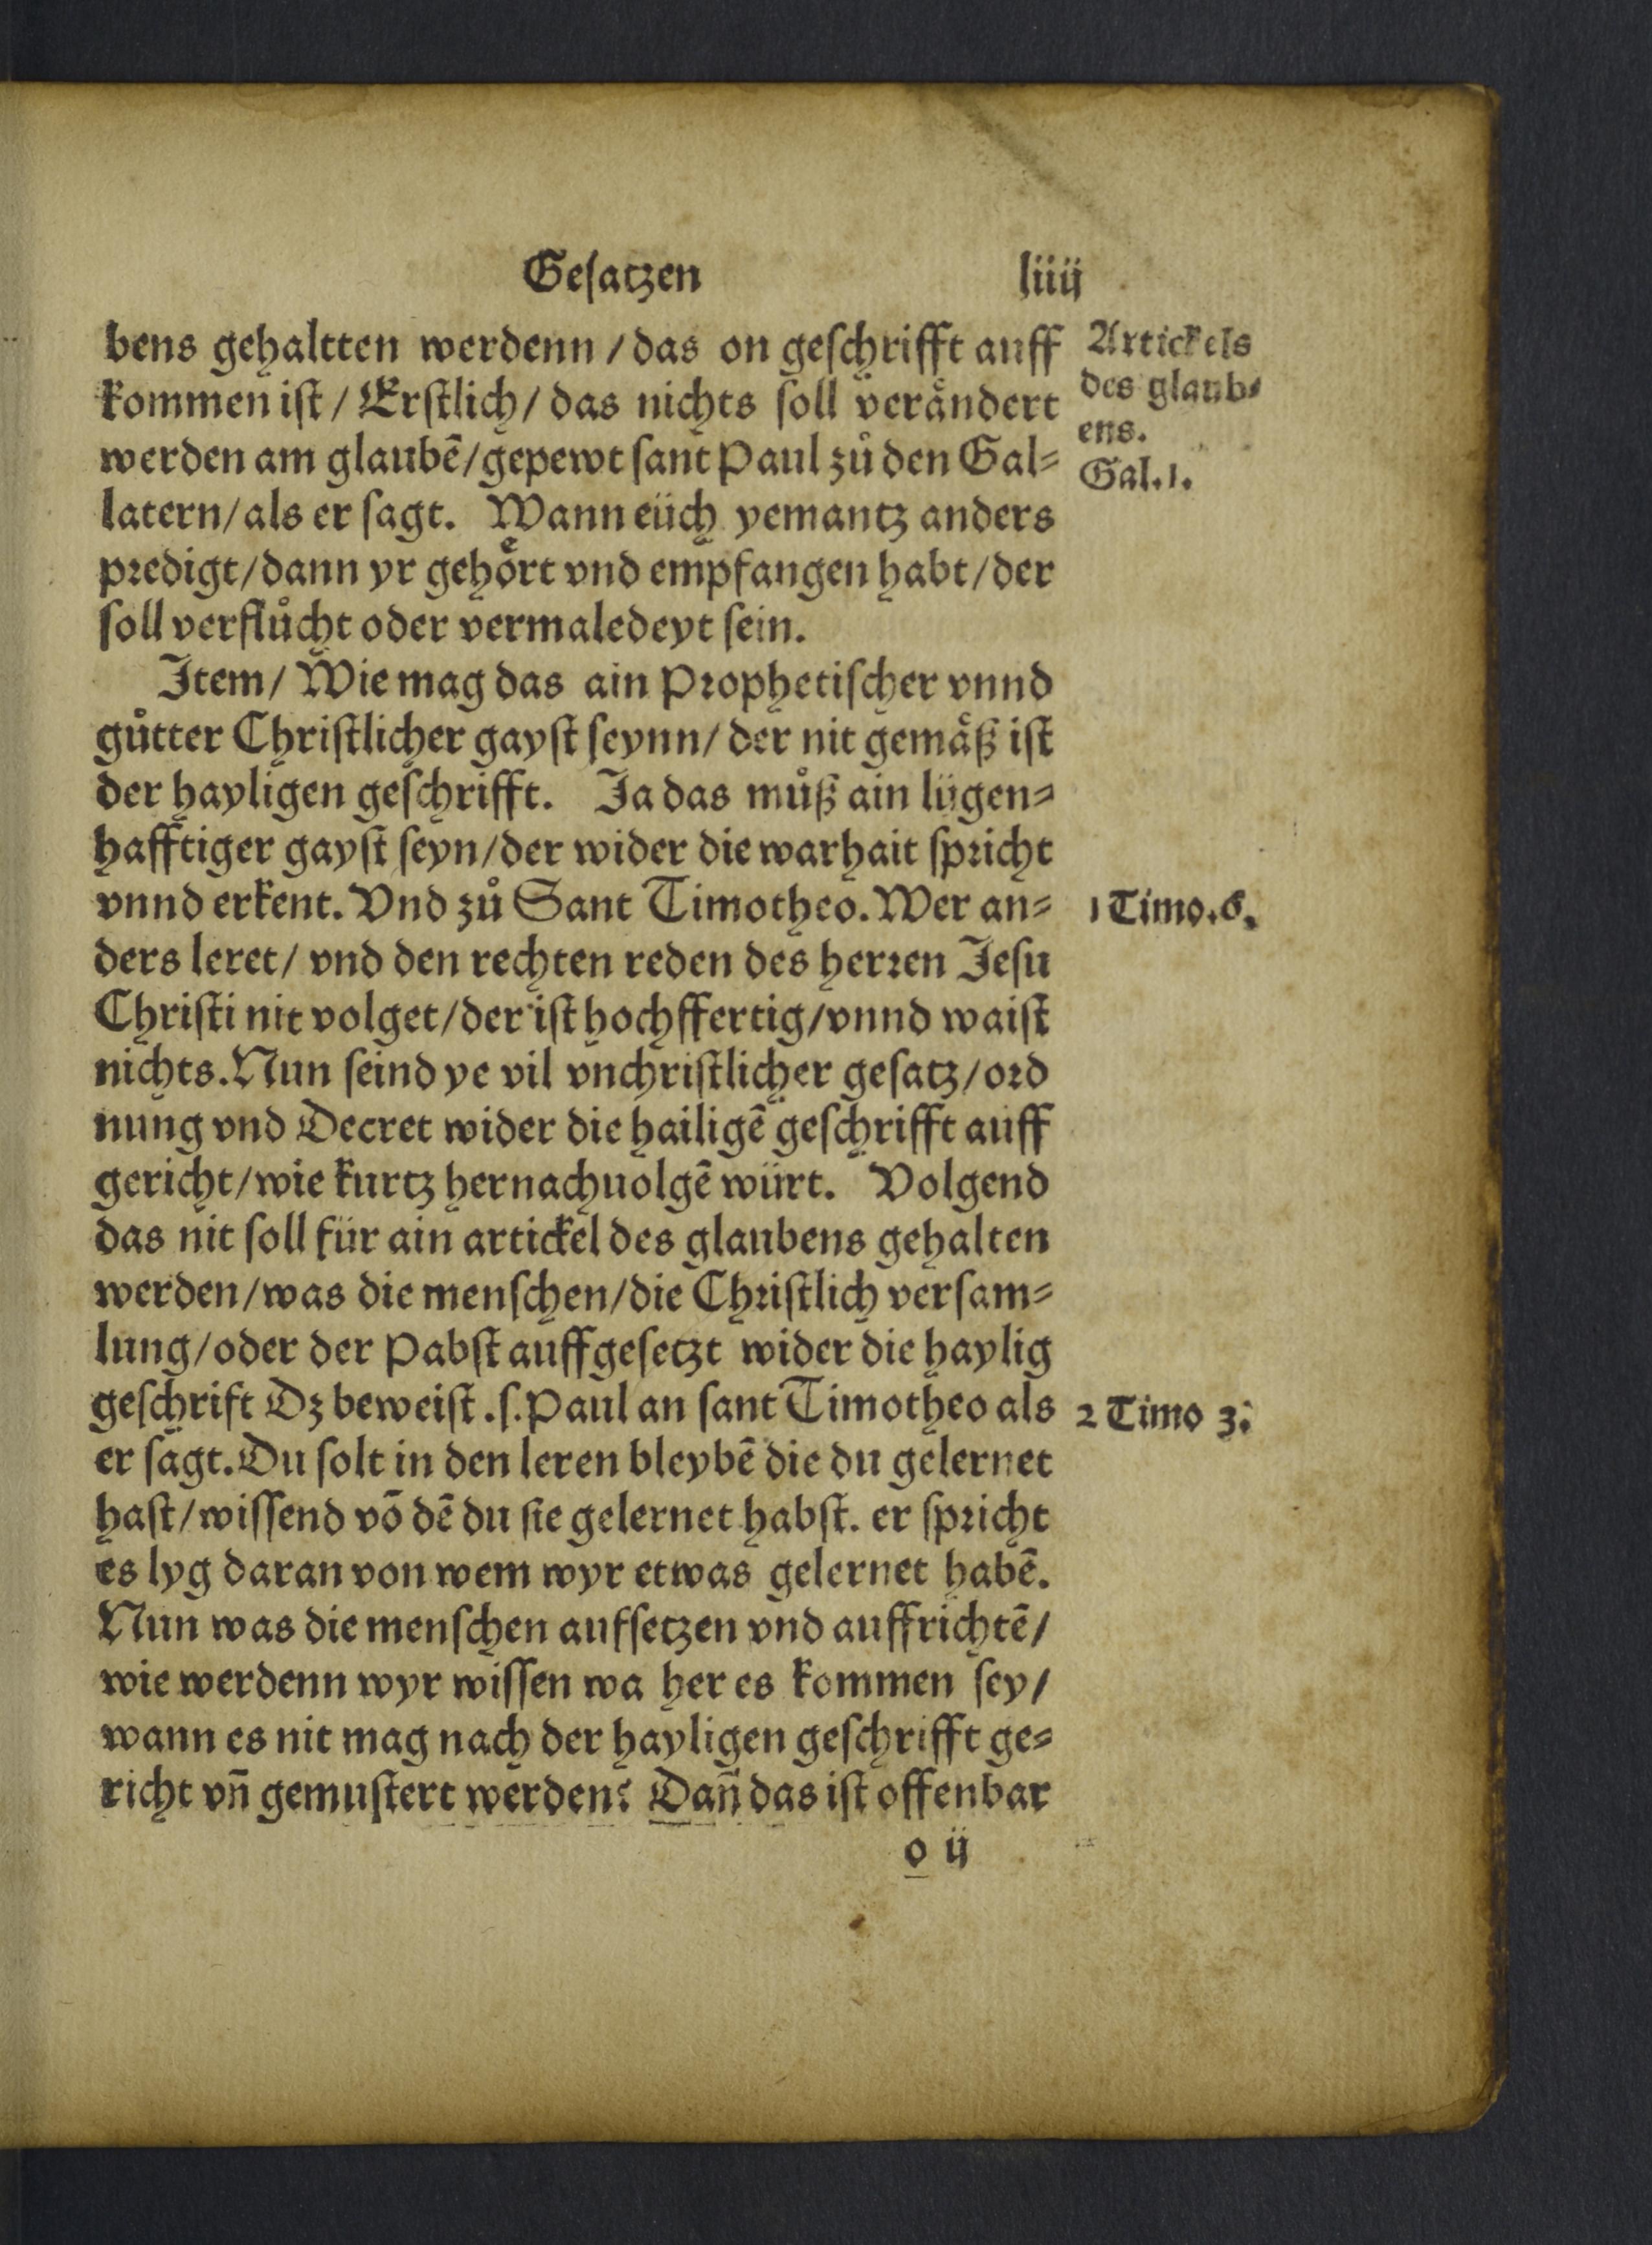 Geſatzen liiij
bens gehaltten werdenn / das on geſchrifft auff
kommen iſt / Erſtlich / das nichts ſoll verаͤndert
werden am glaubē / gepewt ſant Paul zuͦ den Gal⸗
latern / als er ſagt. Wann eüch yemantz anders
predigt / dann yr gehoͤrt vnd empfangen habt / der
ſoll verfluͦcht oder vermaledeyt ſein.
Item / Wie mag das ain Prophetiſcher vnnd
guͦtter Chriſtlicher gayſt ſeynn / der nit gemaͤß iſt
der hayligen geſchrifft. Ja das muͦß ain lügen⸗
hafftiger gayſt ſeyn / der wider die warhait ſpricht
vnnd erkent. Vnd zuͦ Sant Timotheo. Wer an⸗
ders leret / vnd den rechten reden des herren Jeſu
Chriſti nit volget / der iſt hochffertig / vnnd waiſt
nichts. Nun ſeind ye vil vnchriſtlicher geſatz / ord
nung vnd Decret wider die hailigē geſchrifft auff
gericht / wie kurtz hernachuolgē würt. Volgend
das nit ſoll für ain artickel des glaubens gehalten
werden / was die menſchen / die Chriſtlich verſam⸗
lung / oder der Pabſt auffgeſetzt wider die haylig
geſchrift Dz beweiſt .ſ. Paul an ſant Timotheo als
er ſagt. Du ſolt in den leren bleybē die du gelernet
haſt / wiſſend vō dē du ſie gelernet habſt. er ſpricht
es lyg daran von wem wyr etwas gelernet habē.
Nun was die menſchen aufſetzen vnd auffrichtē /
wie werdenn wyr wiſſen wa her es kommen ſey /
wann es nit mag nach der hayligen geſchrifft ge⸗
richt vn̄ gemuſtert werden? Dan̄ das iſt offenbar
o ij
Artickels
des glaub⸗
ens.
Gal. 1.
1 Timo. 6.
2 Timo 3.